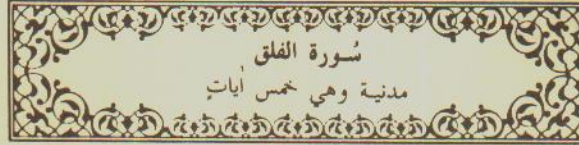 سُورة الفلق
مدنية وهي خمس أياتٍ